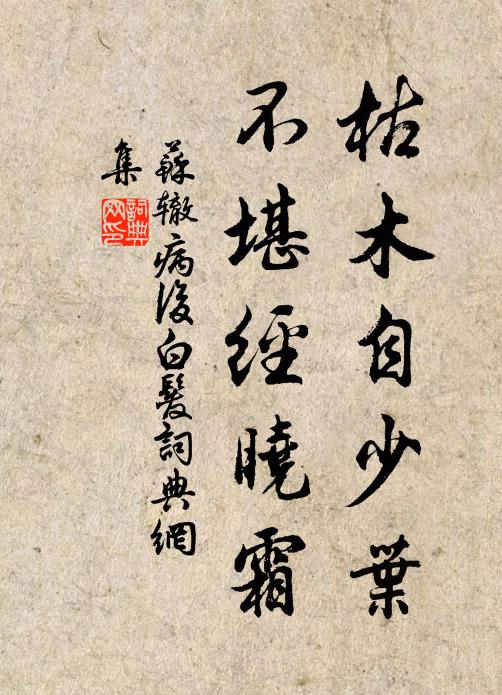 枯木自少葉
不堪經曉霜
蘇轍病後白髮詞典網
集
詞典
网印